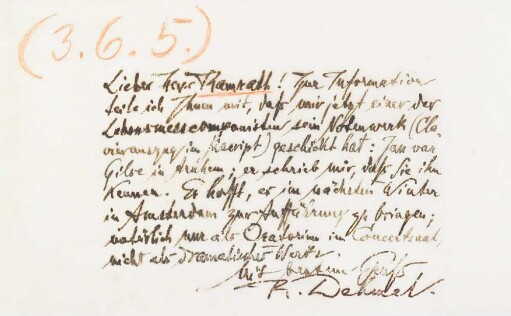 (3.6.5.)
Lieber Herr Ramrath! Zur Information
teile ich Ihnen mit, daß mir jetzt einer der
Lebensmesscomponisten sein Notenwerk (Cla-
vierauszug im Script) geschickt hat: Jan van
Gilse in Arnhem; er schrieb mir, daß Sie ihn
kennen. Er hofft, es im nächsten Winter
in Amsterdam zur Aufführung zu bringen;
natürlich nur als Oratorium im Concertsaal,
nicht als dramatisches Werk.
Mit bestem Gruß
R. Dehmel.